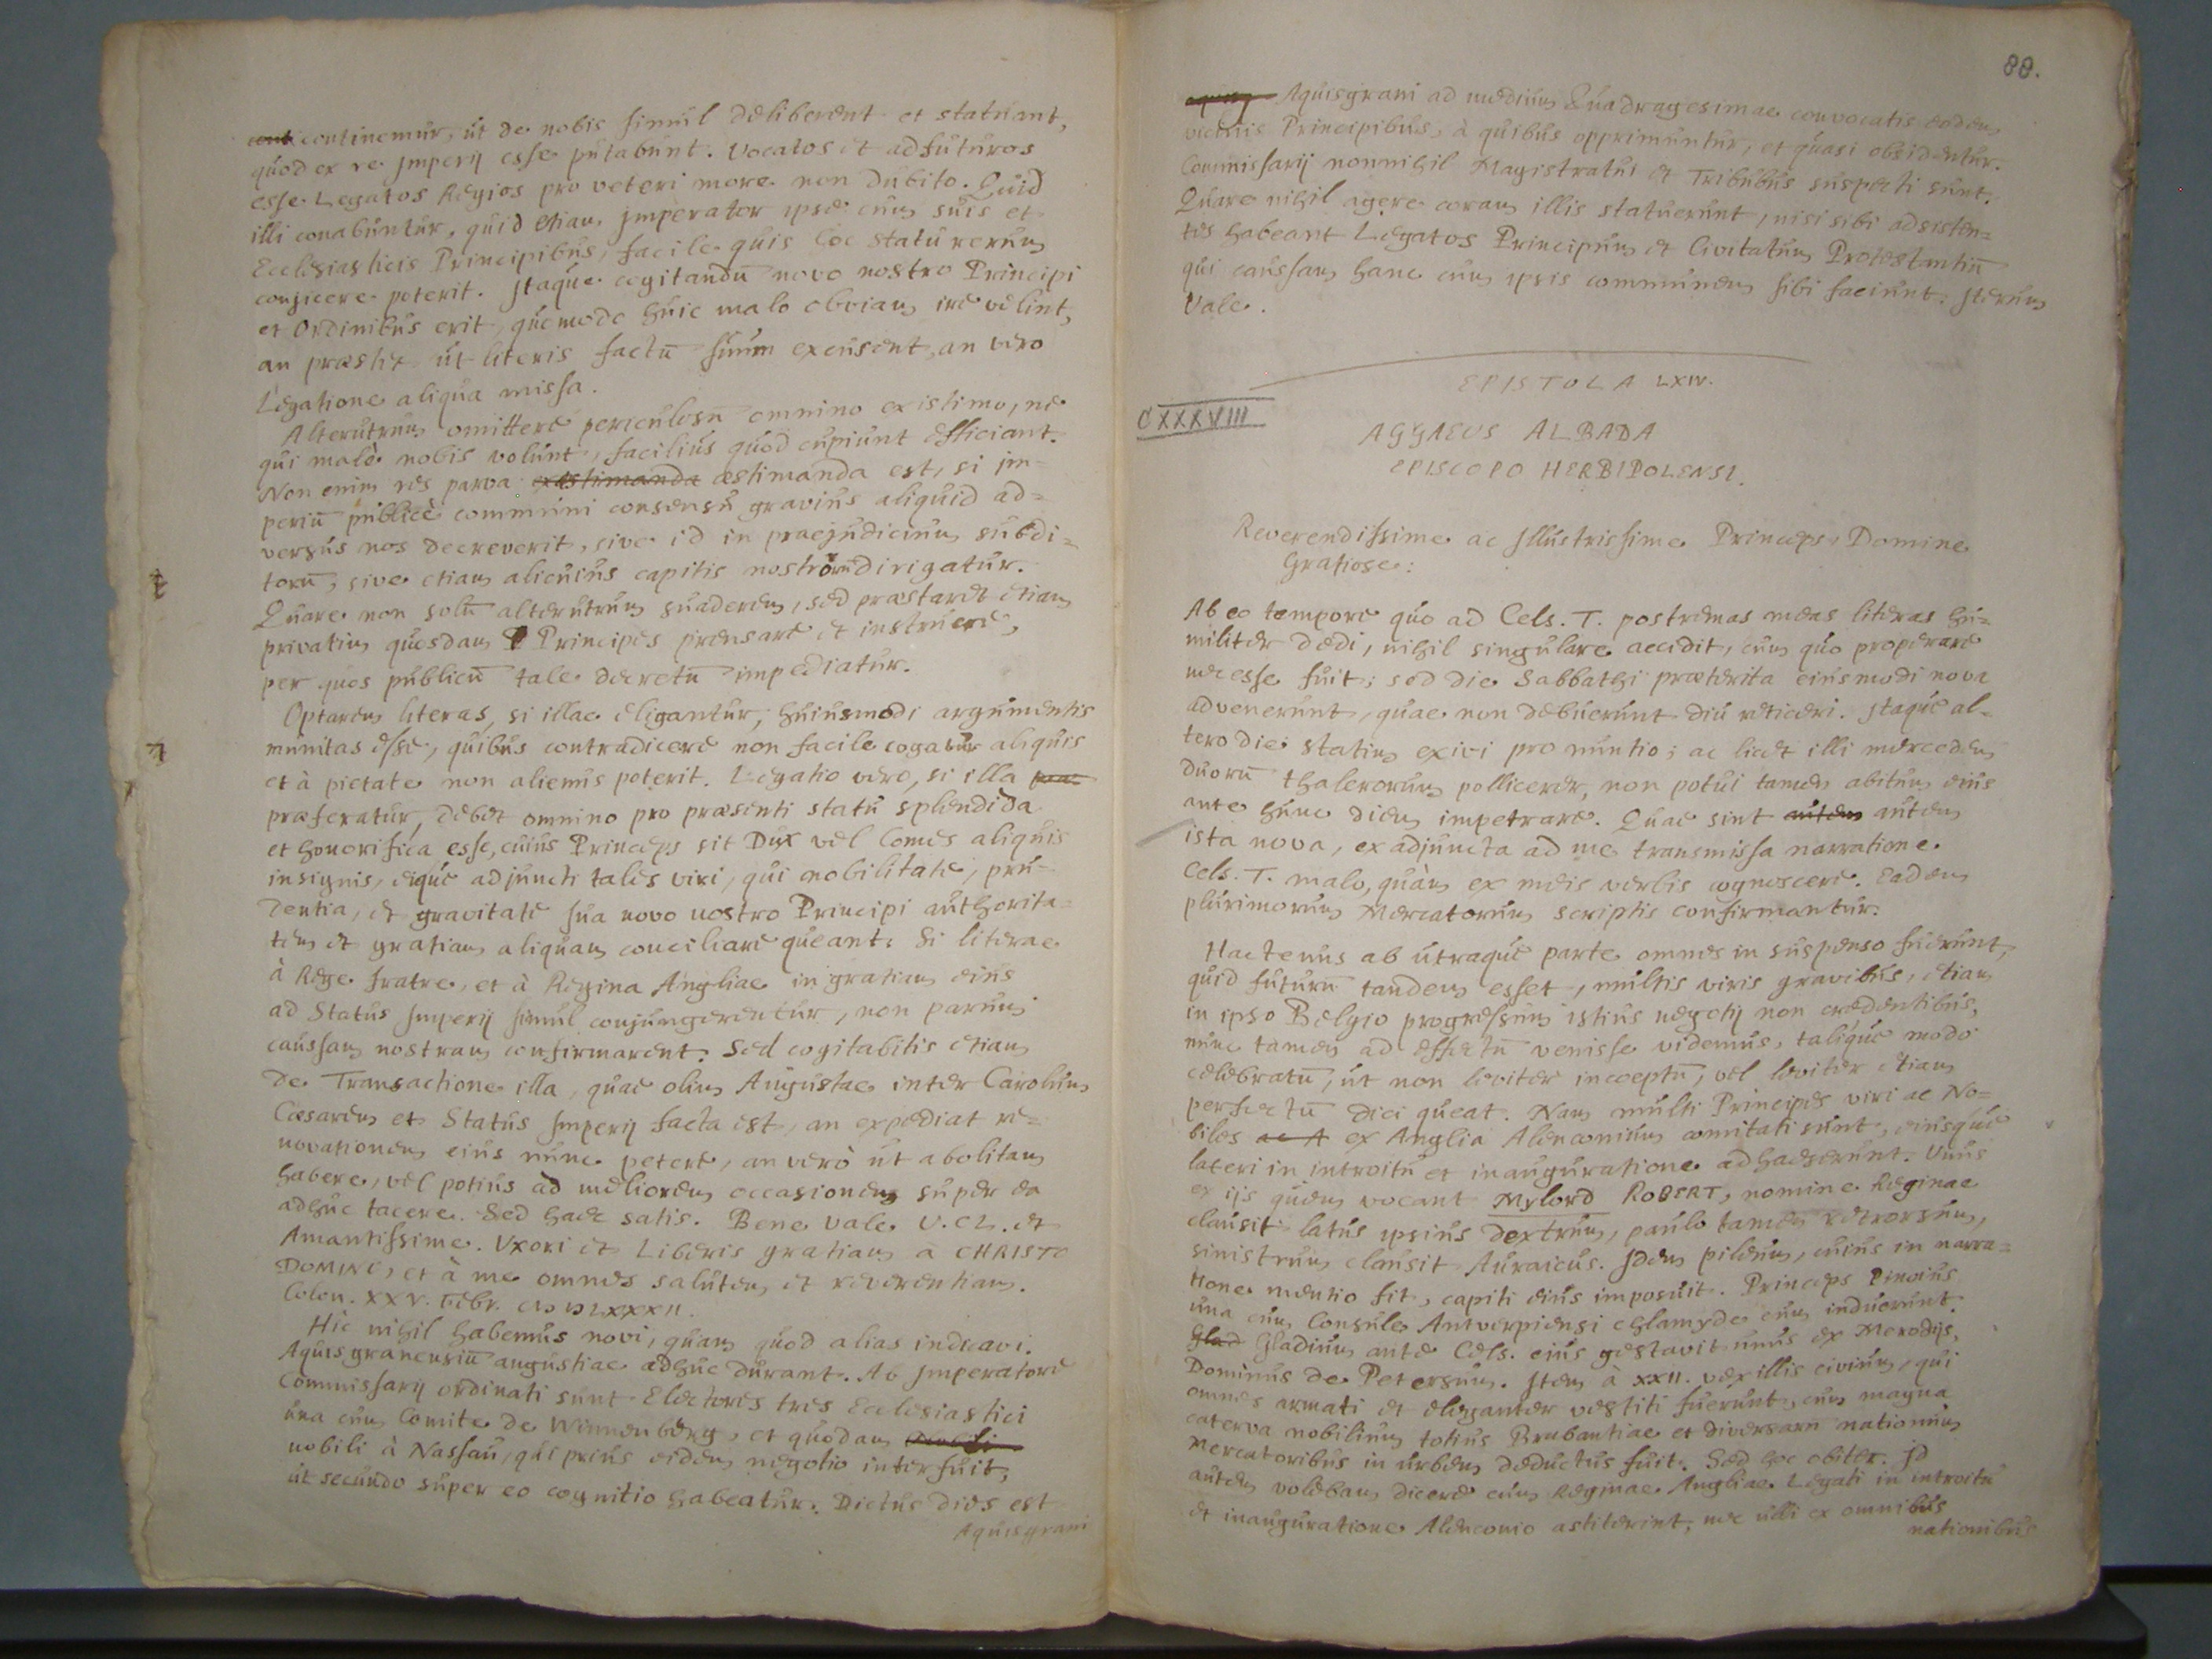 continemur, ut de nobis simul deliberent et statuant,
quod ex re Imperij esse putabunt. Vocatos et adfuturos
esse Legatos Regios pro veteri more non dubito. Quid
illi conabuntur, quid etiam Imperator ipse cum suis et
Ecclesiasticis Principibus, facile quis hoc statu rerum
conjicere poterit. Itaque cogitandū novo nostro Principi
et Ordinibus erit, quomodo huic malo obviam ire velint,
an præstet ut literis factū suum excusent, an vero
Legatione aliqua missa.
Alterutrum omittere periculosū omnino existimo, ne
qui malè nobis volunt, facilius quod cupiunt efficiant.
Non enim res parva existimanda æstimanda est, si Im=
periū publicè communi consensu gravius aliquid ad=
versus nos decreverit, sive id in praejudicium subdi=
torū, sive etiam alicuius capitis nostrorū dirigatur.
Quare non solū alterutrum suaderem, sed præstaret etiam
privatim quosdam Principes prensare et instruere,
per quos publicū tale decretū impediatur.
Optarem literas, si illae eligantur, huiusmodi argumentis
munitas esse, quibus contradicere non facile cogatur aliquis
et à pietate non alienus poterit. Legatio vero, si illa prae
præferatur, debet omnino pro præsenti statu splendida
et honorifica esse, cuius Princeps sit Dux vel Comes aliquis
insignis, eique adjuncti tales viri, qui nobilitate, pru-
dentia, et gravitate sua novo nostro Principi authorita=
tem et gratiam aliquam conciliare queant. Si literae
à Rege fratre, et à Regina Angliae in gratiam eius
ad Status Imperij simul conjungerentur, non parum
caussam nostram confirmarent. Sed cogitabitis etiam
de Transactione illa, quae olim Augustae inter Carolum
Cæsarem et Status Imperij facta est, an expediat re=
novationem eius nunc petere, an verò ut abolitam
habere, vel potius ad meliorem occasionem super ea
adhuc tacere. Sed haec satis. Bene vale V. Cl. et
Amantissime. Uxori et Liberis gratiam a CHRISTO
DOMINO, et à me omnes salutem et reverentiam.
Colon. XXV. Febr. CIↃ IↃ LXXXII.
Hic nihil habemus novi, quam quod alias indicavi.
Aquisgranensiū angustiae adhuc durant. Ab Imperatore
Commissarij ordinati sunt Electores tres Ecclesiastici
una cum Comite de Winnenberg, et quodam nobili
nobili à Nassau, qui prius eidem negotio interfuit,
ut secundo super eo cognitio habeatur. Dictus dies est
Aquisgrani
88.
Aquisgrani ad medium Quadragesimae convocatis eodem
vicinis Principibus, à quibus opprimuntur, et quasi obsidentur.
Commissarij nonnihil Magistratui et Tribubus suspecti sunt.
Quare nihil agere coram illis statuerunt, nisi sibi adsisten=
tes habeant Legatos Principum et Civitatum Protestantiū
qui caussam hanc cum ipsis communem sibi faciunt. Iterum
Vale.
EPISTOLA LXIV.
CXXXVIII
AGGAEUS ALBADA
EPISCOPO HERBIPOLENSI.
Reverendissime ac Illustrissime Princeps, Domine
Gratiose:
Ab eo tempore quo ad Cels. T. postremas meas literas hu=
militer dedi, nihil singulare accidit, cum quo properare
necesse fuit; sed die Sabbathi præterita eiusmodi nova
advenerunt, quae non debuerunt diu reticeri. Itaque al=
tero die statim exivi pro nuntio; ac licet illi mercedem
duorū thalerorum pollicerer, non potui tamen abitum eius
ante hunc diem impetrare. Quae sint autem autem
ista nova, ex adjuncta ad me transmissa narratione
Cels. T. malo, quàm ex meis verbis cognoscere. Eadem
plurimorum Mercatorum scriptis confirmantur.
Hactenus ab utraque parte omnes in suspenso fuerunt,
quid futurū tandem esset, multis viris gravibus, etiam
in ipso Belgio progressum istius negotij non credentibus,
nunc tamen ad effectū venisse videmus, talique modo
celebratū, ut non leviter inceptū, vel leviter etiam
perfectū dici queat. Nam multi Principes viri ac No=
biles ac A ex Anglia Alenconium comitati sunt, eiusque
lateri in introitu et inauguratione adhaeserunt. Unus
ex ijs quem vocant Mylord ROBERT, nomine Reginae
clausit latus ipsius dextrum, paulo tamen retrorsum,
sinistrum clausit Auraicus. Idem pileum, cuius in narra=
tione mentio fit, capiti eius imposuit. Princeps Pinoius
una cum Consule Antverpiensi chlamyde eum induerunt.
Glad Gladium ante Cels. eius gestavit unus ex Merodijs,
Dominus de Petersum. Item à XXII. vexillis civium, qui
omnes armati et eleganter vestiti fuerunt, cum magna
caterva nobilium totius Brabantiae et diversarū nationum
Mercatoribus in urbem deductus fuit. Sed hoc obiter. Id
autem volebam dicere cum Reginae Angliae Legati in introitu
et inauguratione Alenconio astiterint, nec ulli ex omnibus
nationibus